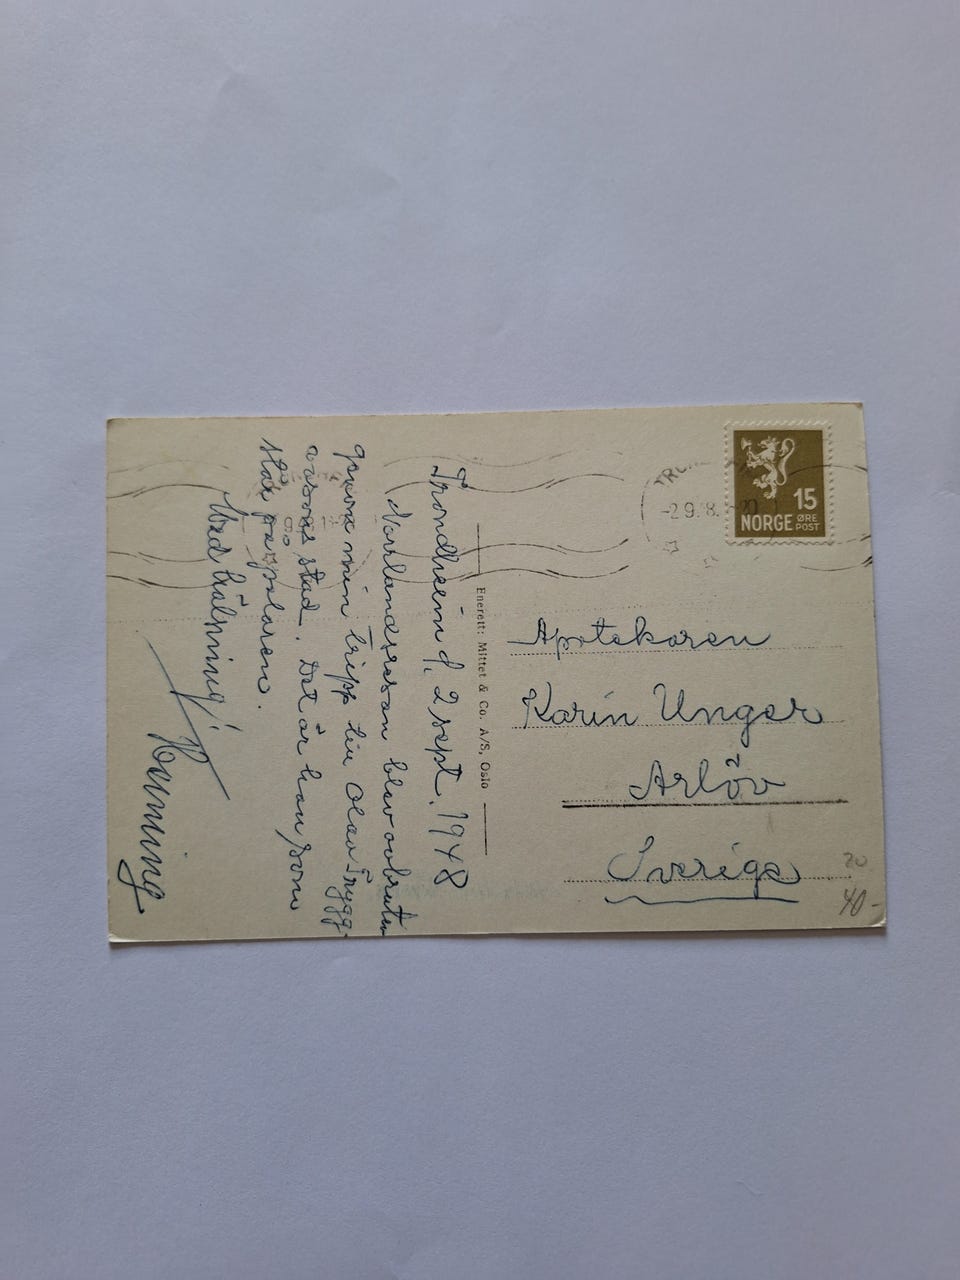 Trondheim d. 2 sept. 1948
Norrlandsresan blev avbruten
genom min tripp till Olav Trygg-
vasons stad. Det är han som
står på pelaren.
Med hälsning!
Henning
Enerett: Mittet & Co. A/S, Oslo
-2 9. 8. -20
NORGE
15
ØRE
POST
Apotekaren
Karin Unger
Arlöv
Sverige
20
40-